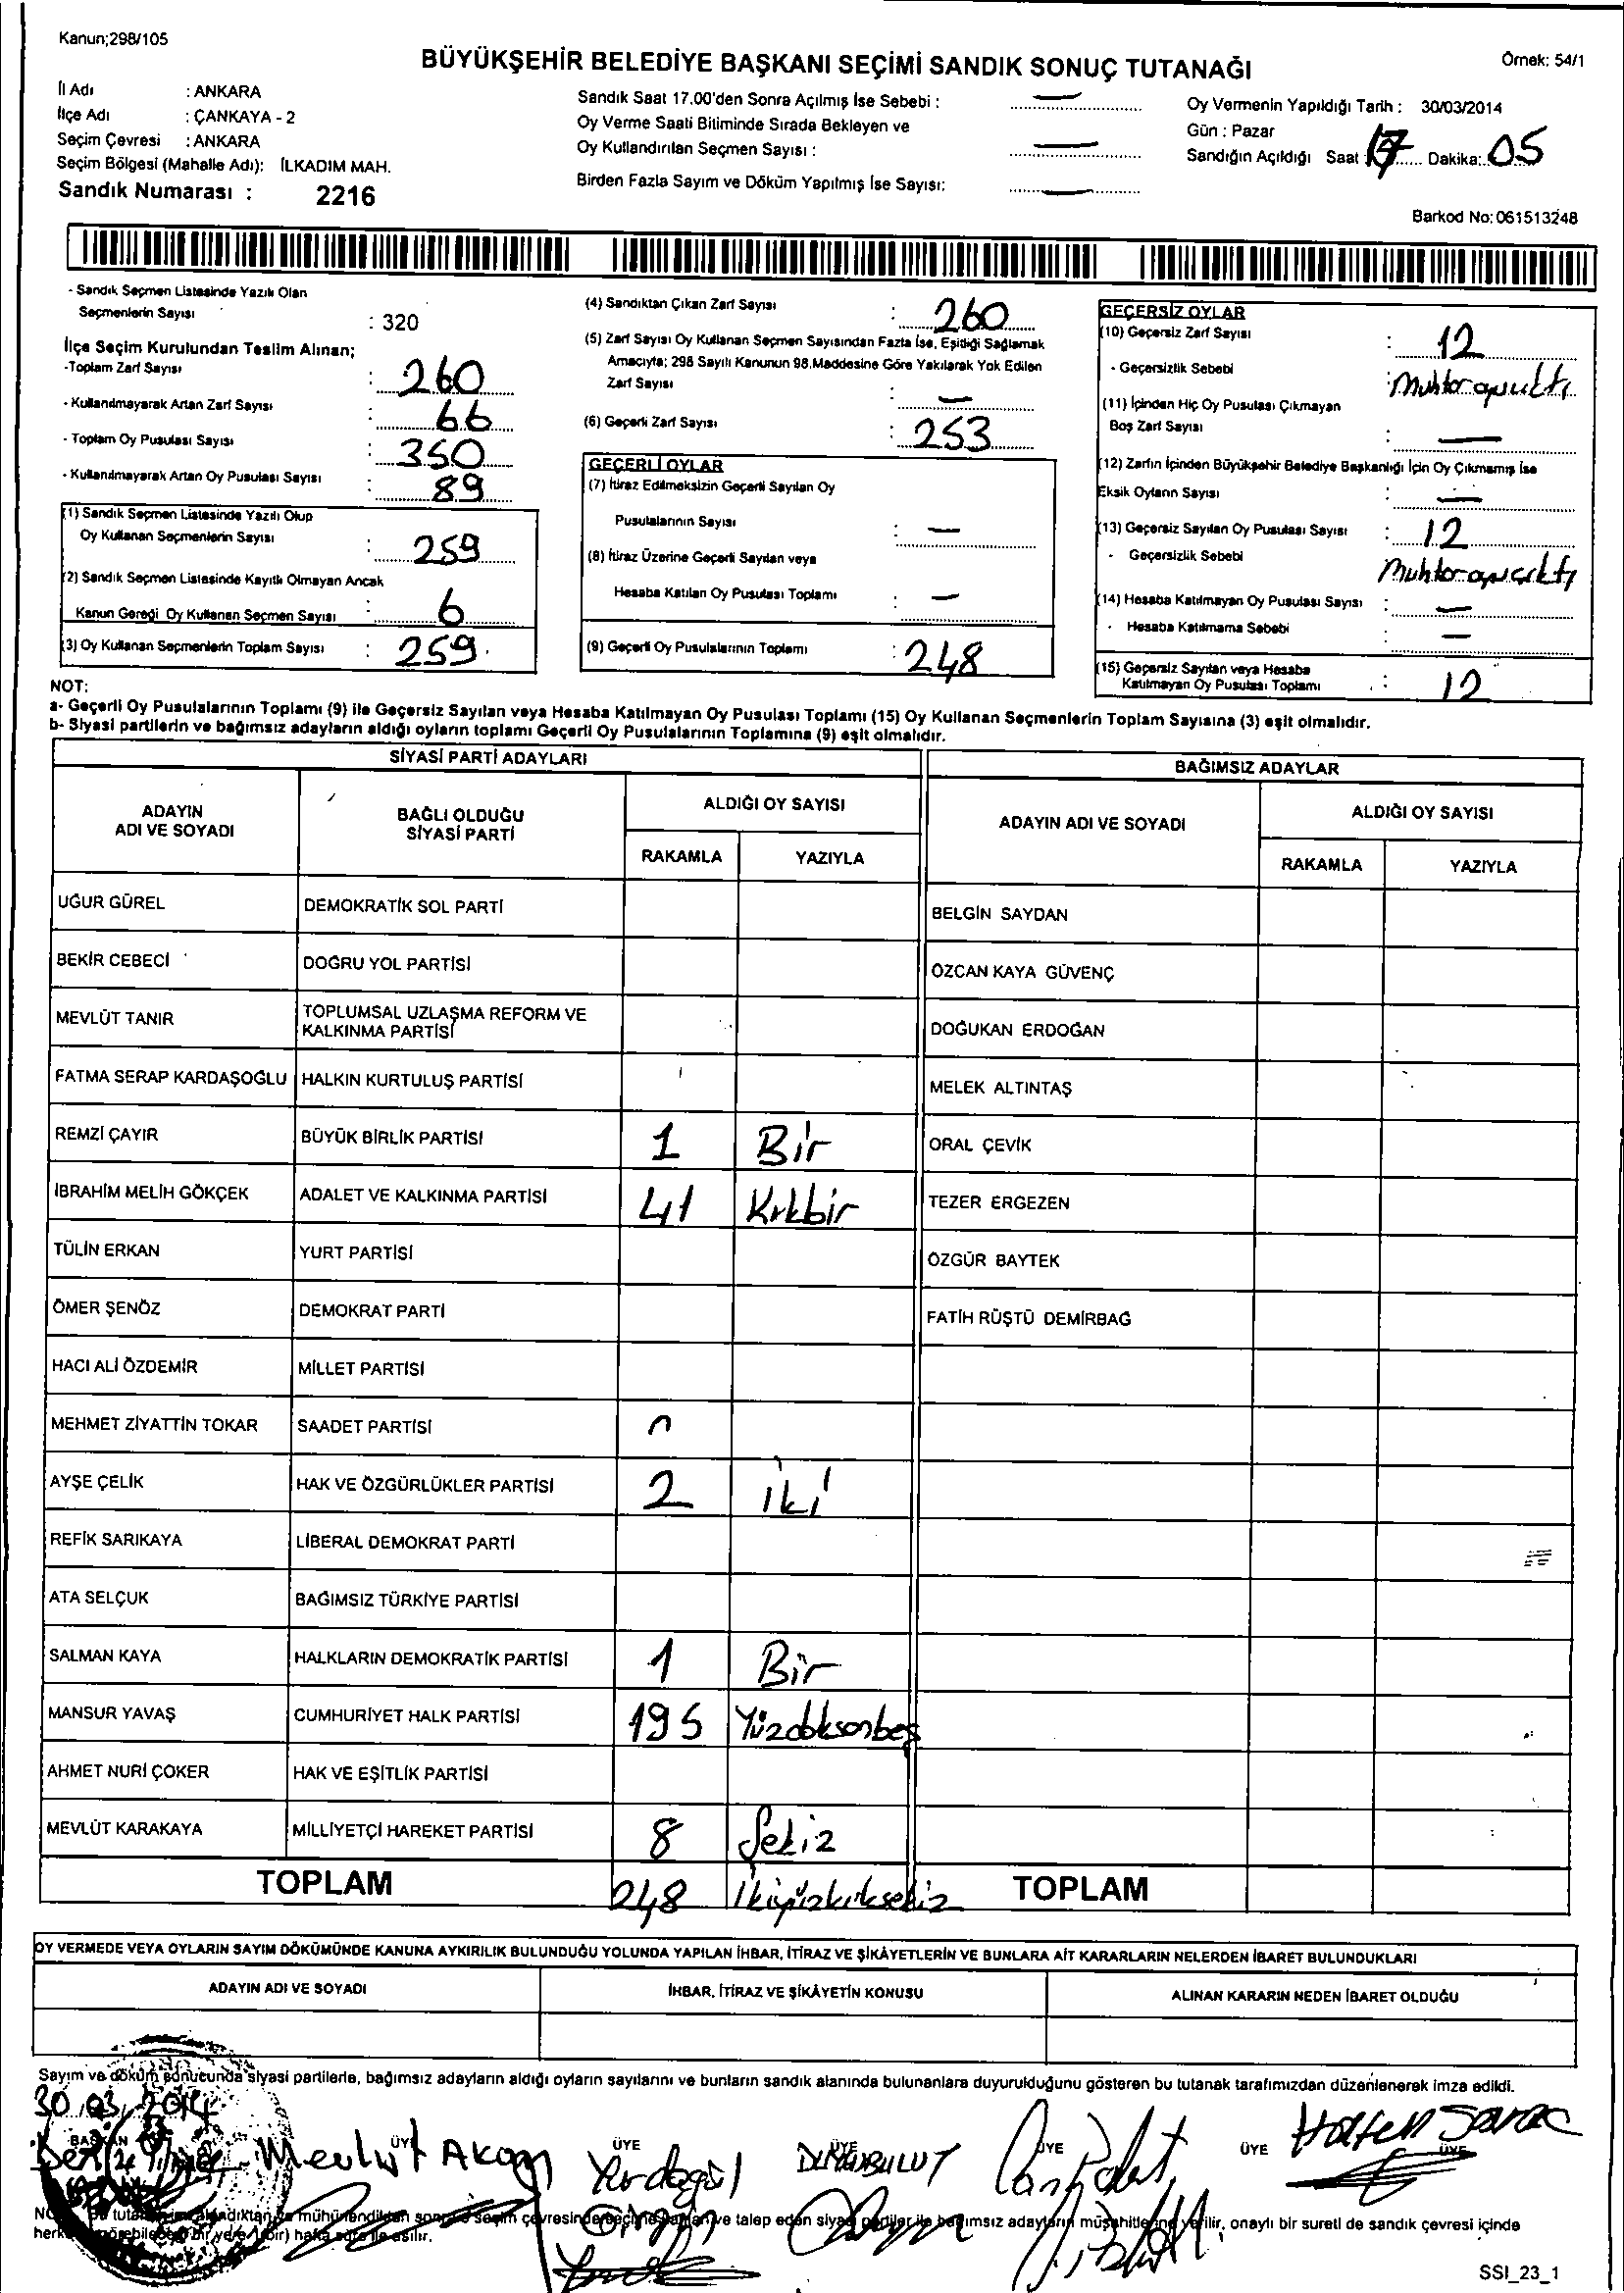 Kanun;298/105
BÜYÜKŞEHİR BELEDİYE BAŞKANI SEÇİMİ SANDIK SONUÇ TUTANAĞI
Örnek: 54/1
İl Adı : ANKARA
İlçe Adı : ÇANKAYA - 2
Seçim Çevresi : ANKARA
Seçim Bölgesi (Mahalle Adı): İLKADIM MAH.
Sandık Numarası : 2216
Sandık Saat 17.00'den Sonra Açılmış İse Sebebi : —
Oy Verme Saati Bitiminde Sırada Bekleyen ve
Oy Kullandırılan Seçmen Sayısı : —
Birden Fazla Sayım ve Döküm Yapılmış İse Sayısı: —
Oy Vermenin Yapıldığı Tarih : 30/03/2014
Gün : Pazar
Sandığın Açıldığı Saat : 17 Dakika: 05
Barkod No: 061513248
- Sandık Seçmen Listesinde Yazılı Olan
Seçmenlerin Sayısı : 320
İlçe Seçim Kurulundan Teslim Alınan;
-Toplam Zarf Sayısı : 260
- Kullanılmayarak Artan Zarf Sayısı : 66
- Toplam Oy Pusulası Sayısı : 350
- Kullanılmayarak Artan Oy Pusulası Sayısı : 89
(1) Sandık Seçmen Listesinde Yazılı Olup
Oy Kullanan Seçmenlerin Sayısı : 259
(2) Sandık Seçmen Listesinde Kayıtlı Olmayan Ancak
Kanun Gereği Oy Kullanan Seçmen Sayısı : 6
(3) Oy Kullanan Seçmenlerin Toplam Sayısı : 259
(4) Sandıktan Çıkan Zarf Sayısı : 260
(5) Zarf Sayısı Oy Kullanan Seçmen Sayısından Fazla İse, Eşitliği Sağlamak
Amacıyla; 298 Sayılı Kanunun 98.Maddesine Göre Yakılarak Yok Edilen
Zarf Sayısı : —
(6) Geçerli Zarf Sayısı : 253
GEÇERLİ OYLAR
(7) İtiraz Edilmeksizin Geçerli Sayılan Oy
Pusulalarının Sayısı : —
(8) İtiraz Üzerine Geçerli Sayılan veya
Hesaba Katılan Oy Pusulası Toplamı : —
(9) Geçerli Oy Pusulalarının Toplamı : 248
GEÇERSİZ OYLAR
(10) Geçersiz Zarf Sayısı : 12
- Geçersizlik Sebebi : Muhtar
(11) İçinden Hiç Oy Pusulası Çıkmayan
Boş Zarf Sayısı : —
(12) Zarfın İçinden Büyükşehir Belediye Başkanlığı İçin Oy Çıkmamış İse
Eksik Oyların Sayısı : —
(13) Geçersiz Sayılan Oy Pusulası Sayısı : 12
- Geçersizlik Sebebi Muhtar
(14) Hesaba Katılmayan Oy Pusulası Sayısı : —
- Hesaba Katılmama Sebebi : —
(15) Geçersiz Sayılan veya Hesaba
Katılmayan Oy Pusulası Toplamı : 12
NOT:
a- Geçerli Oy Pusulalarının Toplamı (9) ile Geçersiz Sayılan veya Hesaba Katılmayan Oy Pusulası Toplamı (15) Oy Kullanan Seçmenlerin Toplam Sayısına (3) eşit olmalıdır.
b- Siyasi partilerin ve bağımsız adayların aldığı oyların toplamı Geçerli Oy Pusulalarının Toplamına (9) eşit olmalıdır.
SİYASİ PARTİ ADAYLARI
ADAYIN ADI VE SOYADI BAĞLI OLDUĞU SİYASİ PARTİ ALDIĞI OY SAYISI
RAKAMLA YAZIYLA
UĞUR GÜREL DEMOKRATİK SOL PARTİ
BEKİR CEBECİ DOĞRU YOL PARTİSİ
MEVLÜT TANIR TOPLUMSAL UZLAŞMA REFORM VE
KALKINMA PARTİSİ
FATMA SERAP KARDAŞOĞLU HALKIN KURTULUŞ PARTİSİ
REMZİ ÇAYIR BÜYÜK BİRLİK PARTİSİ 1 Bir
İBRAHİM MELİH GÖKÇEK ADALET VE KALKINMA PARTİSİ 41 Kırkbir
TÜLİN ERKAN YURT PARTİSİ
ÖMER ŞENÖZ DEMOKRAT PARTİ
HACI ALİ ÖZDEMİR MİLLET PARTİSİ
MEHMET ZİYATTİN TOKAR SAADET PARTİSİ
AYŞE ÇELİK HAK VE ÖZGÜRLÜKLER PARTİSİ 2 iki
REFİK SARIKAYA LİBERAL DEMOKRAT PARTİ
ATA SELÇUK BAĞIMSIZ TÜRKİYE PARTİSİ
SALMAN KAYA HALKLARIN DEMOKRATİK PARTİSİ 1 Bir
MANSUR YAVAŞ CUMHURİYET HALK PARTİSİ 195 Yüzdoksanbeş
AHMET NURİ ÇOKER HAK VE EŞİTLİK PARTİSİ
MEVLÜT KARAKAYA MİLLİYETÇİ HAREKET PARTİSİ 8 Sekiz
TOPLAM 248 İkiyüzkırksekiz
BAĞIMSIZ ADAYLAR
ADAYIN ADI VE SOYADI ALDIĞI OY SAYISI
RAKAMLA YAZIYLA
BELGİN SAYDAN
ÖZCAN KAYA GÜVENÇ
DOĞUKAN ERDOĞAN
MELEK ALTINTAŞ
ORAL ÇEVİK
TEZER ERGEZEN
ÖZGÜR BAYTEK
FATİH RÜŞTÜ DEMİRBAĞ
TOPLAM
OY VERMEDE VEYA OYLARIN SAYIM DÖKÜMÜNDE KANUNA AYKIRILIK BULUNDUĞU YOLUNDA YAPILAN İHBAR, İTİRAZ VE ŞİKÂYETLERİN VE BUNLARA AİT KARARLARIN NELERDEN İBARET BULUNDUKLARI
ADAYIN ADI VE SOYADI İHBAR, İTİRAZ VE ŞİKÂYETİN KONUSU ALINAN KARARIN NEDEN İBARET OLDUĞU
Sayım ve döküm sonucunda siyasi partilerle, bağımsız adayların aldığı oyların sayılarını ve bunların sandık alanında bulunanlara duyurulduğunu gösteren bu tutanak tarafımızdan düzenlenerek imza edildi.
30.03.2014
BAŞKAN ÜYE ÜYE ÜYE ÜYE ÜYE ÜYE
Mevlüt Yurdagül
seçim çevresinde talep eden siyasi partiler ile bağımsız adayların müşahitlerine verilir, onaylı bir sureti de sandık çevresi içinde
hafta süre ile asılır.
SSI_23_1